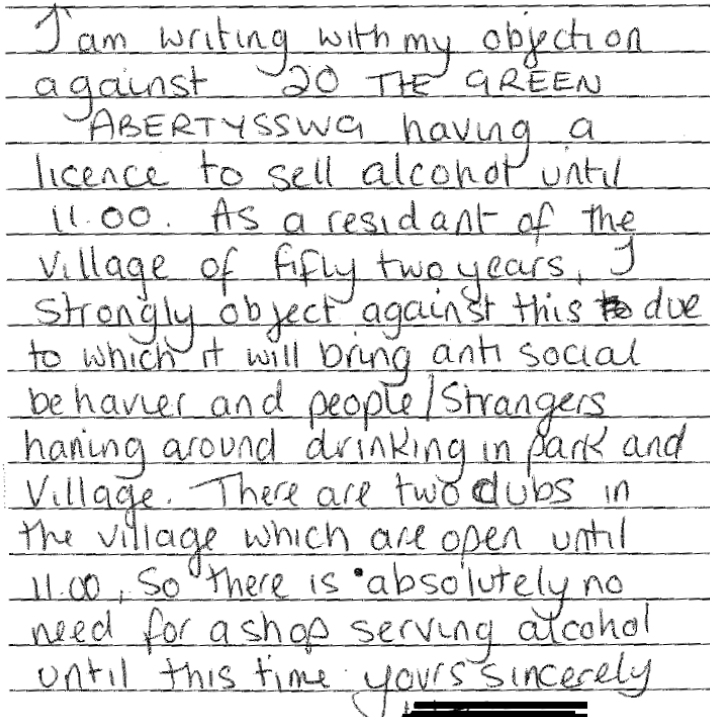 I am writing with my objection
against 20 THE GREEN
ABERTYSSWG having a
licence to sell alcohol until
11.00. As a residant of the
village of fifty two years, I
strongly object against this to due
to which it will bring anti social
behavier and people/strangers
haning around drinking in park and
village. There are two clubs in
the village which are open until
11.00, So there is absolutely no
need for a shop serving alcohol
until this time yours sincerely